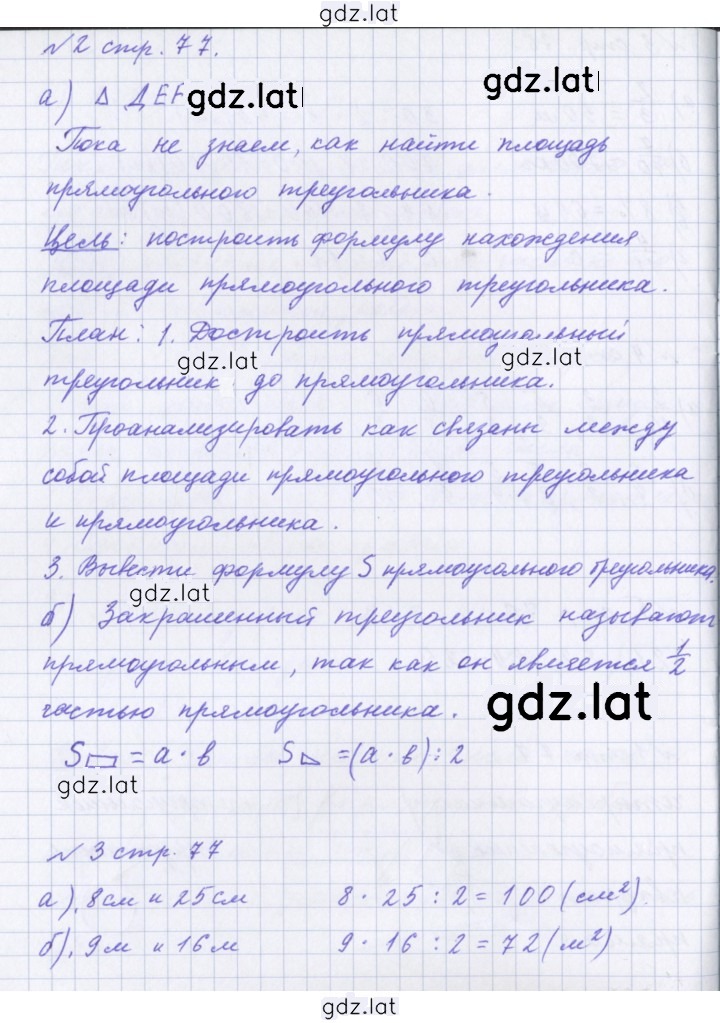 gdz.lat
№2 стр. 77.
а) Δ ДЕF gdz.lat gdz.lat
Пока не знаем, как найти площадь
прямоугольного треугольника.
Цель: построить формулу нахождения
площади прямоугольного треугольника.
План: 1. Достроить прямоугольный
gdz.lat gdz.lat
треугольник до прямоугольника.
2. Проанализировать как связаны между
собой площади прямоугольного треугольника
и прямоугольника.
3. Вывести формулу S прямоугольного треугольника.
gdz.lat
б) Закрашенный треугольник называют
прямоугольным, так как он является 1/2
частью прямоугольника. gdz.lat
S▭ = а · в S◺ = (а · в) : 2
gdz.lat
№3 стр. 77
а) 8см и 25см 8 · 25 : 2 = 100 (см²).
б) 9м и 16м 9 · 16 : 2 = 72 (м²)
gdz.lat